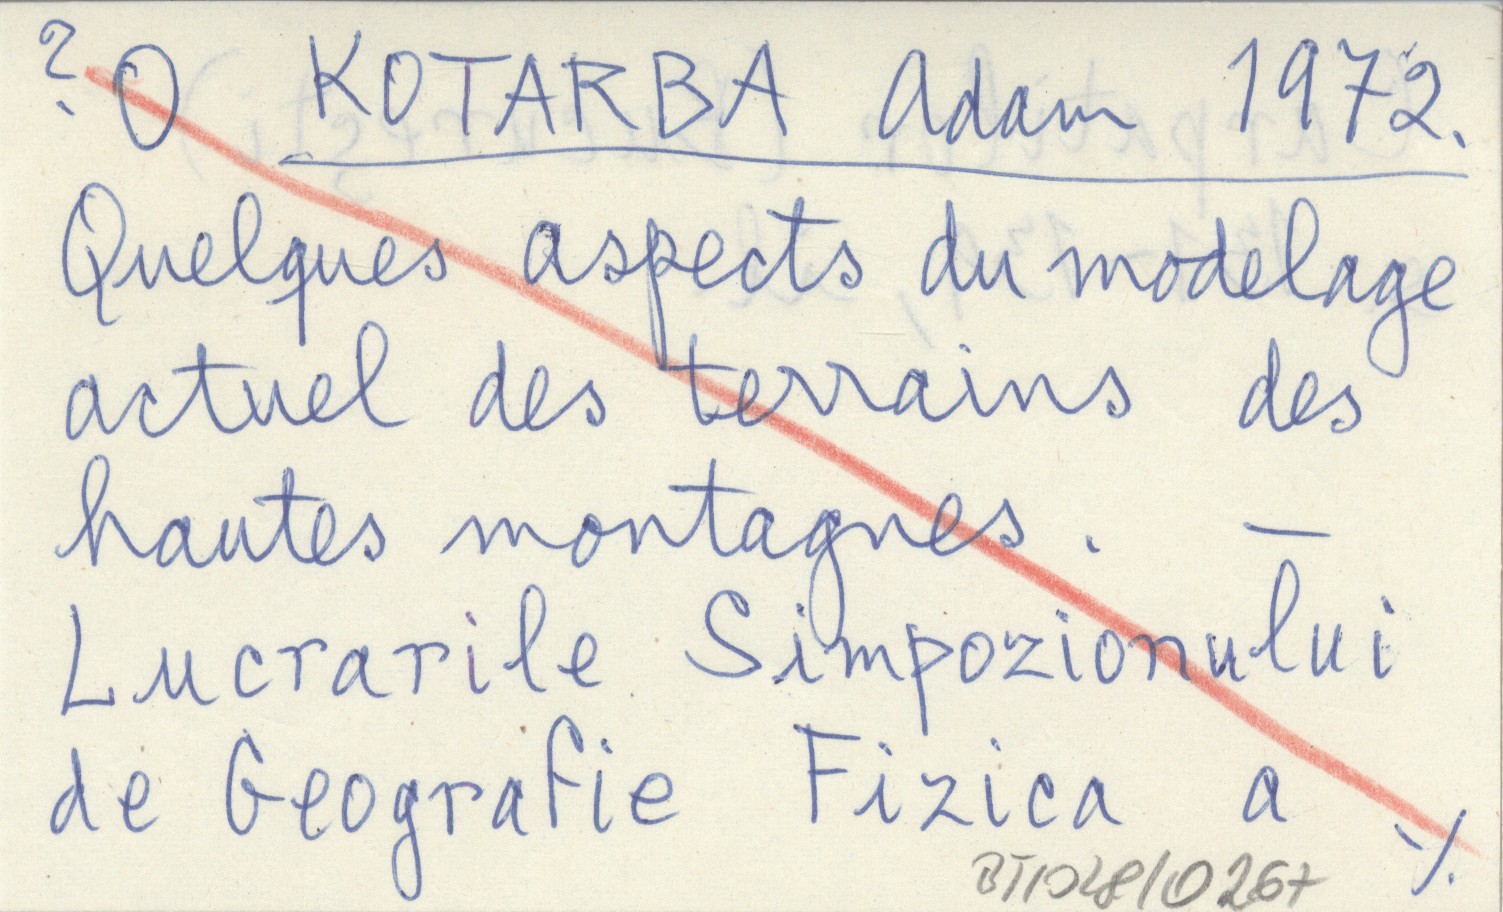 ? O KOTARBA Adam 1972.
Quelques aspects du modelage
actuel des terrains des
hautes montagnes. —
Lucrarile Simpozionului
de Geografie Fizica a
·/.
BT1048/0267